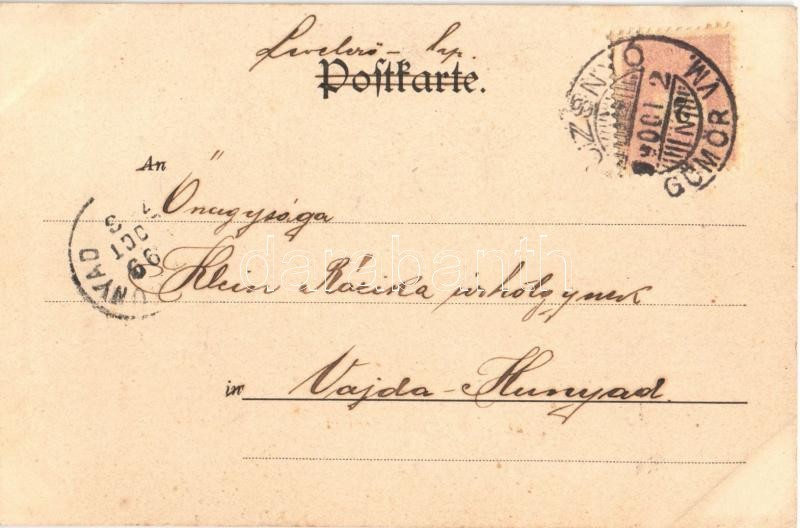 Levelező-lap.
Postkarte.
An Őnagysága
Klein Rózsika úrhölgynek
in Vajda-Hunyad.
GÖMÖR VM.
99 OCT 2
NYAD
99 OCT 3
darabanth